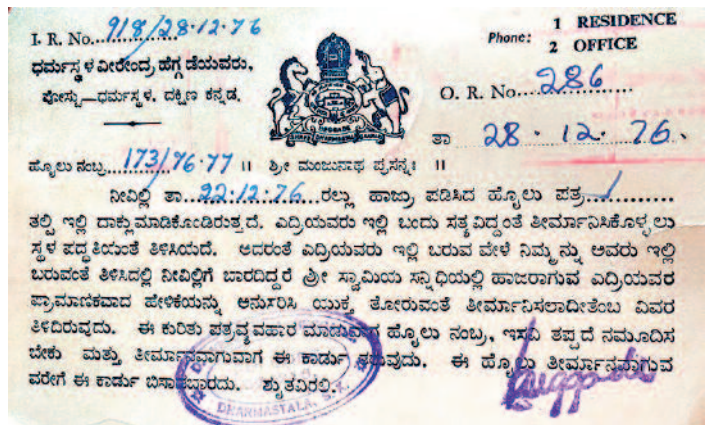 I. R. No. 918/28-12-76
Phone: 1 RESIDENCE
2 OFFICE
ಧರ್ಮಸ್ಥಳ ವೀರೇಂದ್ರ ಹೆಗ್ಗಡೆಯವರು,
ಪೋಸ್ಟು—ಧರ್ಮಸ್ಥಳ, ದಕ್ಷಿಣ ಕನ್ನಡ.
O. R. No. 286
ತಾ 28. 12. 76.
ಹ್ಯೊಲು ನಂಬ್ರ 173/76-77 ॥ ಶ್ರೀ ಮಂಜುನಾಥ ಪ್ರಸನ್ನಃ ॥
ನೀವಿಲ್ಲಿ ತಾ 22.12.76 ರಲ್ಲು ಹಾಜ್ರು ಪಡಿಸಿದ ಹ್ಯೊಲು ಪತ್ರ 1
ತಲ್ಪಿ ಇಲ್ಲಿ ದಾಕ್ಲುಮಾಡಿಕೊಂಡಿರುತ್ತದೆ. ಎದ್ರಿಯವರು ಇಲ್ಲಿ ಬಂದು ಸತ್ಯವಿದ್ದಂತೆ ತೀರ್ಮಾನಿಸಿಕೊಳ್ಳಲು
ಸ್ಥಳ ಪದ್ಧತಿಯಂತೆ ತಿಳಿಸಿಯದೆ. ಅದರಂತೆ ಎದ್ರಿಯವರು ಇಲ್ಲಿ ಬರುವ ವೇಳೆ ನಿಮ್ಮನ್ನು ಅವರು ಇಲ್ಲಿ
ಬರುವಂತೆ ತಿಳಿಸಿದಲ್ಲಿ ನೀವಿಲ್ಲಿಗೆ ಬಾರದಿದ್ದರೆ ಶ್ರೀ ಸ್ವಾಮಿಯ ಸನ್ನಿಧಿಯಲ್ಲಿ ಹಾಜರಾಗುವ ಎದ್ರಿಯವರ
ಪ್ರಾಮಾಣಿಕವಾದ ಹೇಳಿಕೆಯನ್ನು ಅನುಸರಿಸಿ ಯುಕ್ತ ತೋರುವಂತೆ ತೀರ್ಮಾನಿಸಲಾದೀತೆಂಬ ವಿವರ
ತಿಳಿದಿರುವುದು. ಈ ಕುರಿತು ಪತ್ರವ್ಯವಹಾರ ಮಾಡುವಾಗ ಹ್ಯೊಲು ನಂಬ್ರ, ಇಸವಿ ತಪ್ಪದೆ ನಮೂದಿಸ
ಬೇಕು ಮತ್ತು ತೀರ್ಮಾನವಾಗುವಾಗ ಈ ಕಾರ್ಡು ತರುವುದು. ಈ ಹ್ಯೊಲು ತೀರ್ಮಾನವಾಗುವ
ವರೇಗೆ ಈ ಕಾರ್ಡು ಬಿಸಾಡಬಾರದು. ಶ್ರುತವಿರಲಿ.
DHARMASTALA, S. K.